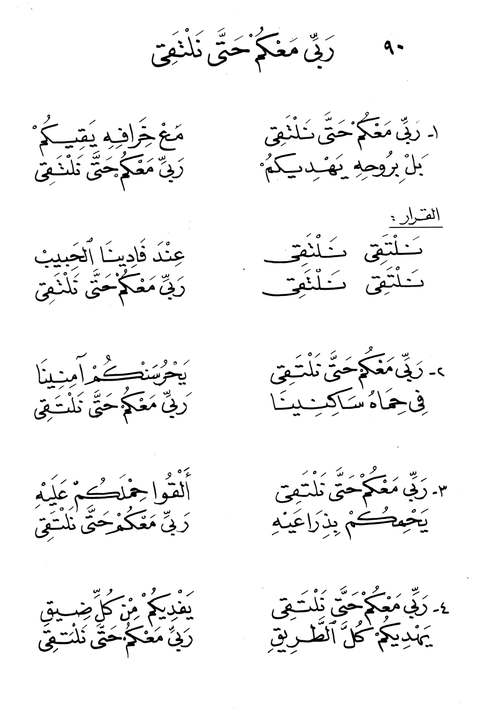 ٩٠ رَبِّي مَعْكُمْ حَتَّى نَلْتَقِى
١- رَبِّي مَعْكُمْ حَتَّى نَلْتَقِى مَعْ خَرَافِهِ يَقِيكُمْ
بَلْ بِرُوحِهِ يَهْدِيكُمْ رَبِّي مَعْكُمْ حَتَّى نَلْتَقِى
القرار :
نَلْتَقِى نَلْتَقِى عِنْدَ فَادِينَا الحَبِيبْ
نَلْتَقِى نَلْتَقِى رَبِّي مَعْكُمْ حَتَّى نَلْتَقِى
٢- رَبِّي مَعْكُمْ حَتَّى نَلْتَقِى يَحْرُسَنْكُمْ آمِنِينَا
فِي حِمَاهُ سَاكِنِينَا رَبِّي مَعْكُمْ حَتَّى نَلْتَقِى
٣- رَبِّي مَعْكُمْ حَتَّى نَلْتَقِى أَلْقُوا حِمْلَكُمْ عَلَيْهِ
يَحْفِكُمْ بِذِرَاعَيْهِ رَبِّي مَعْكُمْ حَتَّى نَلْتَقِى
٤- رَبِّي مَعْكُمْ حَتَّى نَلْتَقِى يَفْدِيكُمْ مِنْ كُلِّ ضِيقِ
يَهْدِيكُمْ كُلَّ الطَّرِيقِ رَبِّي مَعْكُمْ حَتَّى نَلْتَقِى